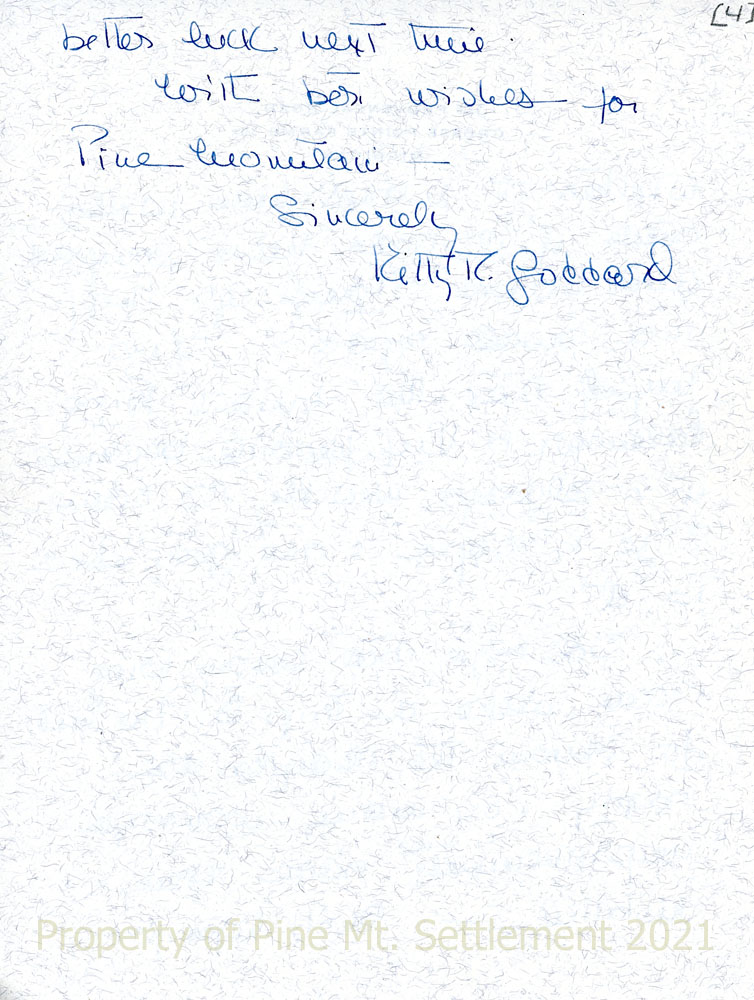 [4]
better luck next time.
With best wishes for
Pine Mountain —
Sincerely
Kitty K. Goddard
Property of Pine Mt. Settlement 2021